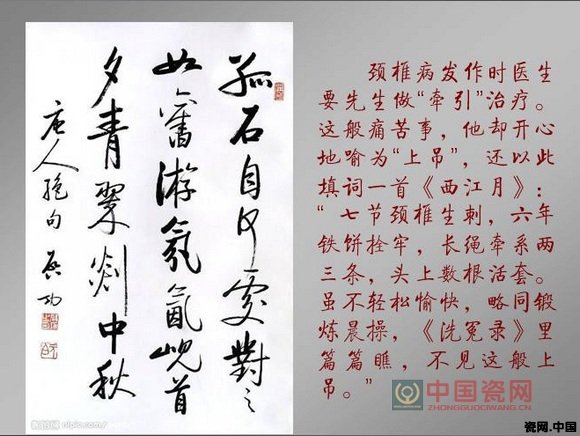 孤石自何處對之
如舊游氛氳峴首
夕青翠剡中秋
唐人絕句 啓功
颈椎病发作时医生
要先生做“牵引”治疗。
这般痛苦事，他却开心
地喻为“上吊”，还以此
填词一首《西江月》：
“七节颈椎生刺，六年
铁饼拴牢，长绳牵系两
三条，头上数根活套。
虽不轻松愉快，略同锻
炼晨操，《洗冤录》里
篇篇瞧，不见这般上
吊。”
中国瓷网
ZHONGGUOCIWANG.CN
昵图网 nipic.com
瓷网.中国